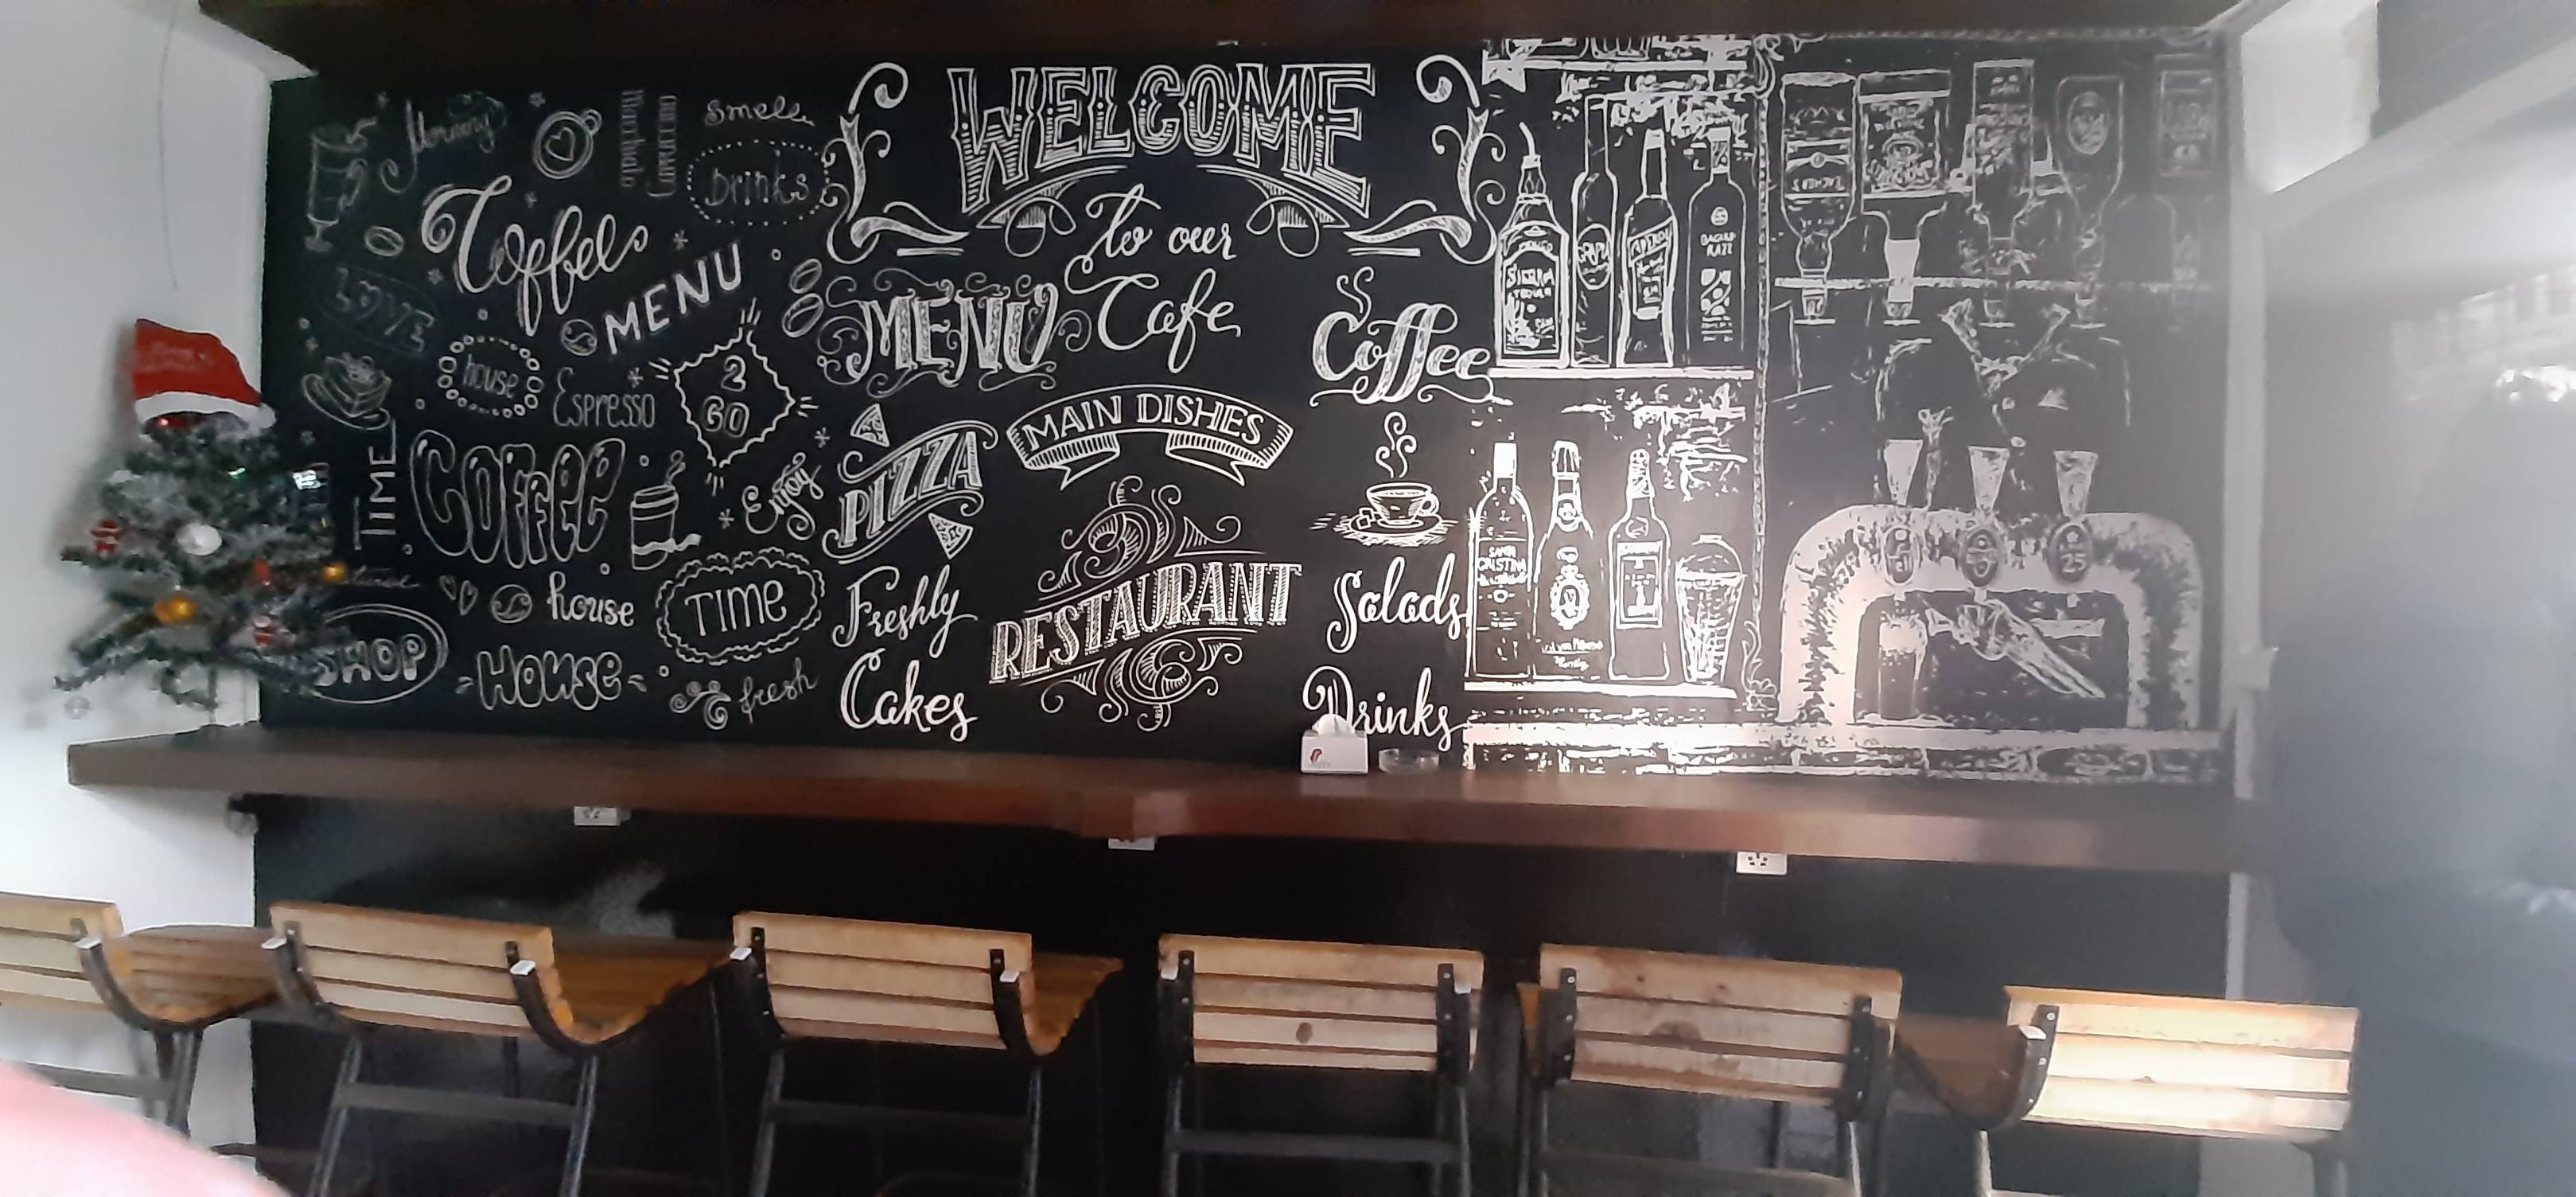 Morning
Macchiato
cappuccino
Smell
Drinks
MENU
LOVE
house
Espresso
2
GO
TIME
COFFee
Enjoy
house
TIME
SHOP
House
fresh
WELCOME
to our
Cafe
MENU
PIZZA
MAIN DISHES
Freshly
Cakes
RESTAURANT
Coffee
Salads
Drinks
SIERRA
TEQUILA
SANTA
CRISTINA
25